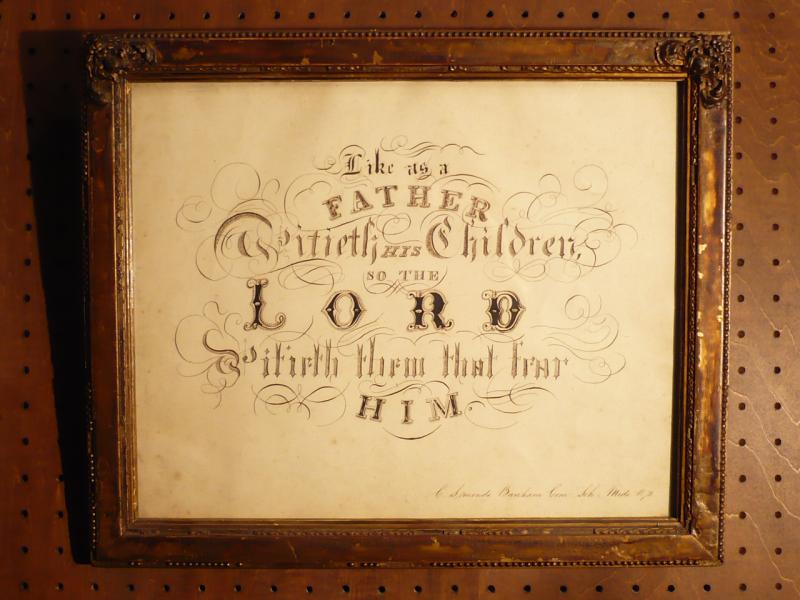 Like as a
FATHER
Pitieth HIS Children,
SO THE
LORD
Pitieth them that fear
HIM.
C Simonds Barham Gra. Sch.